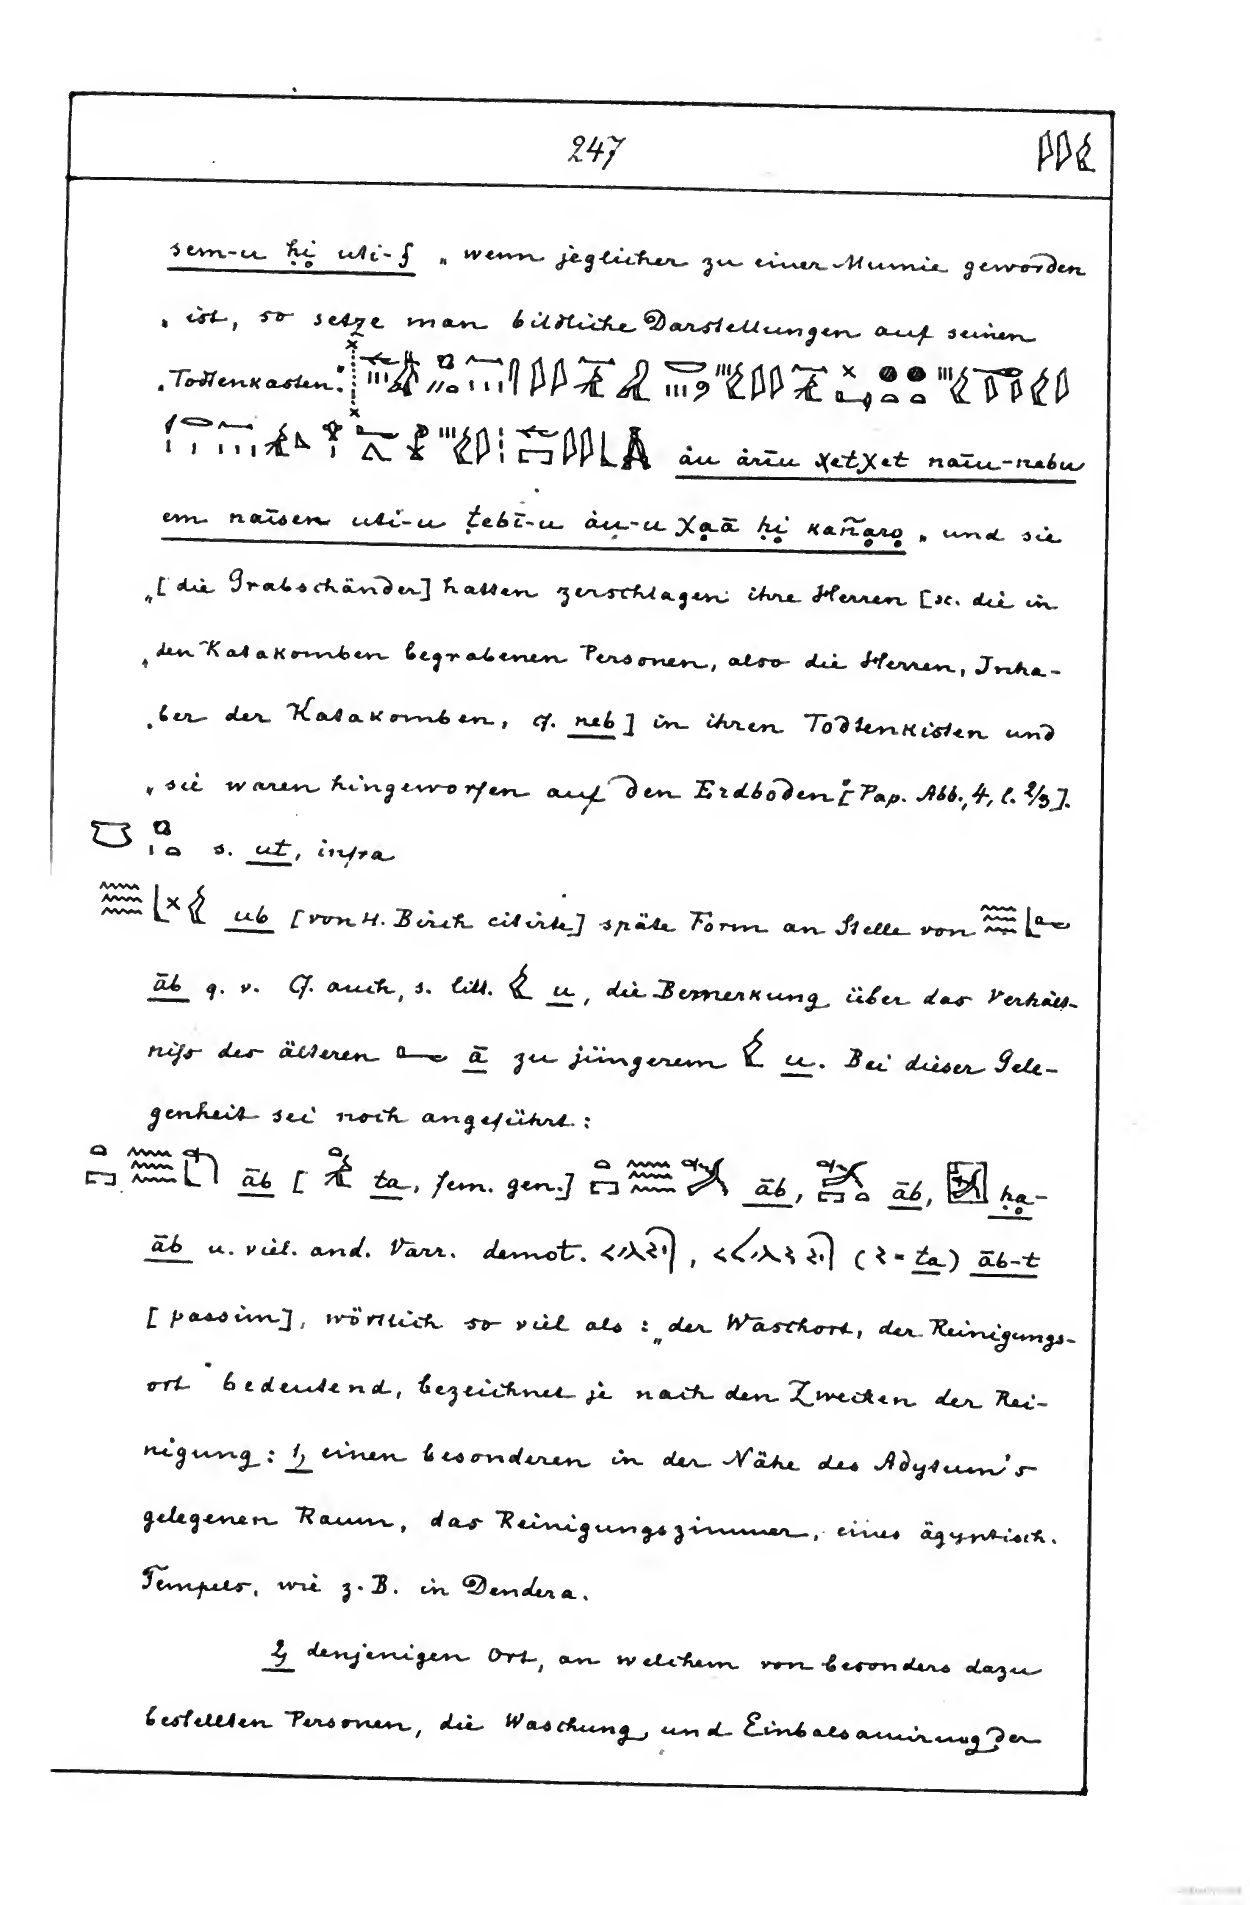 247
sem-u ḥi uti-f „wenn jeglicher zu einer Mumie geworden
„ist, so setze man bildliche Darstellungen auf seinen
„Todtenkasten“
àu àrīu χetχet naīu-nebu
em naīsen uti-u ṭebī-u àu-u χaā ḥi kañaro „und sie
„[die Grabschänder] hatten zerschlagen ihre Herren [sc. die in
„den Katakomben begrabenen Personen, also die Herren, Inha-
„ber der Katakomben, cf. neb] in ihren Todtenkisten und
„sie waren hingeworfen auf den Erdboden“ [Pap. Abb., 4, l. 2/3].
s. ut, infra
ub [von H. Birch citirte] späte Form an Stelle von
āb q. v. Cf. auch, s. litt. u, die Bemerkung über das Verhält-
niſs des älteren ā zu jüngerem u. Bei dieser Gele-
genheit sei noch angeführt:
āb [ ta, fem. gen.] āb, āb, ḥa-
āb u. viel. and. Varr. demot. , ( = ta) āb-t
[passim], wörtlich so viel als: „der Waschort, der Reinigungs-
ort“ bedeutend, bezeichnet je nach den Zwecken der Rei-
nigung: 1, einen besonderen in der Nähe des Adytum's
gelegenen Raum, das Reinigungszimmer, eines ägyptisch.
Tempels, wie z. B. in Dendera.
2, denjenigen Ort, an welchem von besonders dazu
bestellten Personen, die Waschung und Einbalsamirung der